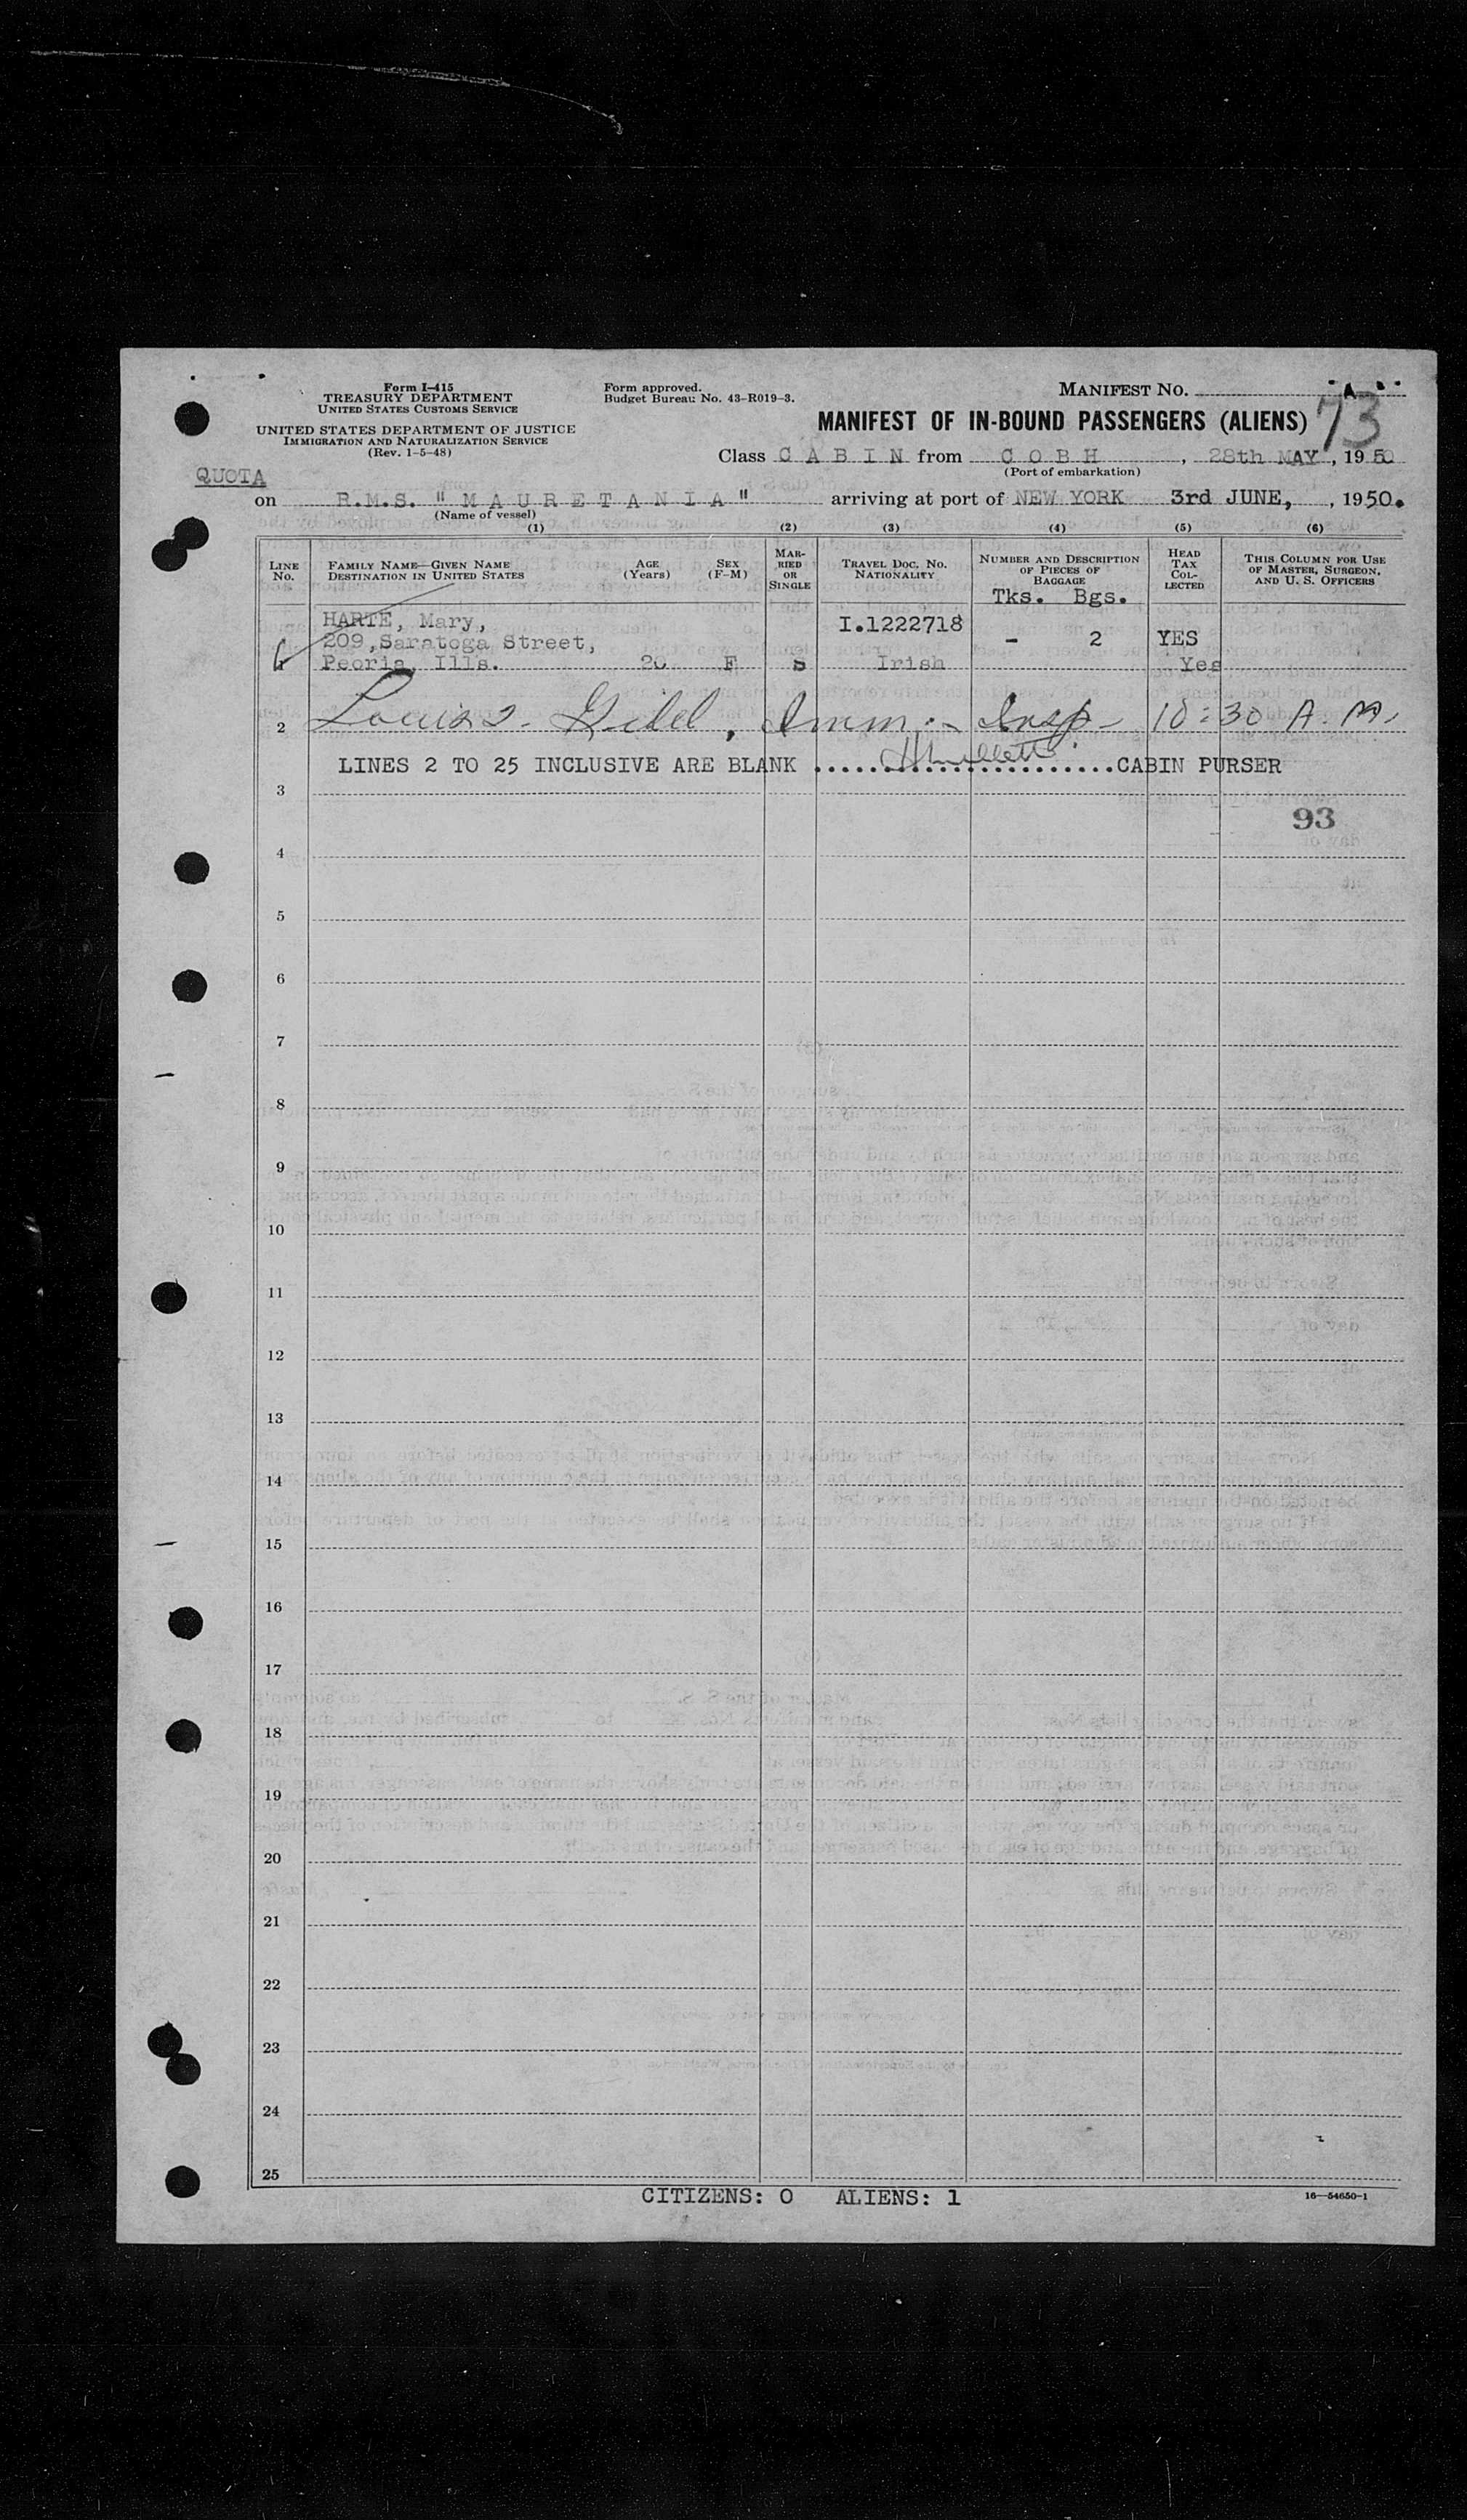 Form I-415
TREASURY DEPARTMENT
UNITED STATES CUSTOMS SERVICE
UNITED STATES DEPARTMENT OF JUSTICE
IMMIGRATION AND NATURALIZATION SERVICE
(Rev. 1-5-48)
Form approved.
Budget Bureau No. 43-R019-3.
MANIFEST NO.
73
MANIFEST OF IN-BOUND PASSENGERS (ALIENS)
Class CABIN from COBH, 28th MAY, 1950
(Port of embarkation)
QUOTA
on R.M.S. "MAURETANIA" arriving at port of NEW YORK 3rd JUNE, 1950.
(Name of vessel)
(1) (2) (3) (4) (5) (6)
LINE No.
FAMILY NAME—GIVEN NAME
DESTINATION IN UNITED STATES
AGE (Years)
SEX (F-M)
MARRIED OR SINGLE
TRAVEL DOC. NO.
NATIONALITY
NUMBER AND DESCRIPTION OF PIECES OF BAGGAGE
Tks. Bgs.
HEAD TAX COLLECTED
THIS COLUMN FOR USE OF MASTER, SURGEON, AND U. S. OFFICERS
HARTE, Mary, I.1222718
209,Saratoga Street, - 2 YES
Peoria, Ills. F S Irish Yes
2 Louis Imm. Insp- 10:30 A.M.
LINES 2 TO 25 INCLUSIVE ARE BLANK ........................CABIN PURSER
3
93
4
5
6
7
8
9
10
11
12
13
14
15
16
17
18
19
20
21
22
23
24
25
CITIZENS: 0 ALIENS: 1
16—54650-1